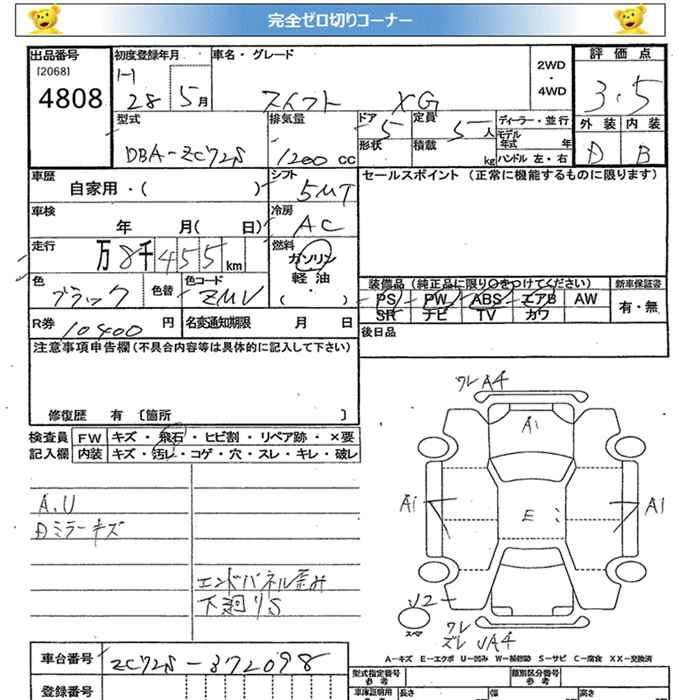 完全ゼロ切りコーナー
出品番号
[2068]
4808
初度登録年月
28 5月
車名・グレード
スイフト XG
2WD
・
4WD
評価点
3.5
外装 内装
D B
型式
DBA-ZC72S
排気量
1200 cc
ドア
5
形状
定員
5人
積載
kg
ディーラー・並行
モデル
年式 年
ハンドル 左・右
車歴
自家用・( )
シフト
5MT
車検
年 月( 日)
冷房
AC
走行
万8千455km
燃料
ガソリン
軽油
( ・ )
色
ブラック
色替
色コード
ZMV
R券
10400 円
名変通知期限 月 日
セールスポイント (正常に機能するものに限ります)
装備品 (純正品に限り○をつけてください)
PS PW ABS エアB AW
SR ナビ TV カワ
新車保証書
有・無
後日品
注意事項申告欄 (不具合内容等は具体的に記入して下さい)
修復歴 有 〔箇所 〕
検査員
記入欄
FW キズ・飛石・ヒビ割・リペア跡・×要
内装 キズ・汚レ・コゲ・穴・スレ・キレ・破レ
A.U
Dミラーキズ
エンドパネル歪み
下廻りS
ワレ A4
A1
A1
E
A1
U2
スペア
ワレ
ズレ UA4
A-キズ E-エクボ U-凹み W-補修跡 S-サビ C-腐食 XX-交換済
車台番号
ZC72S-372098
登録番号
型式指定番号
参考
類別区分番号
参考
車庫証明用
参考
長さ
幅
高さ